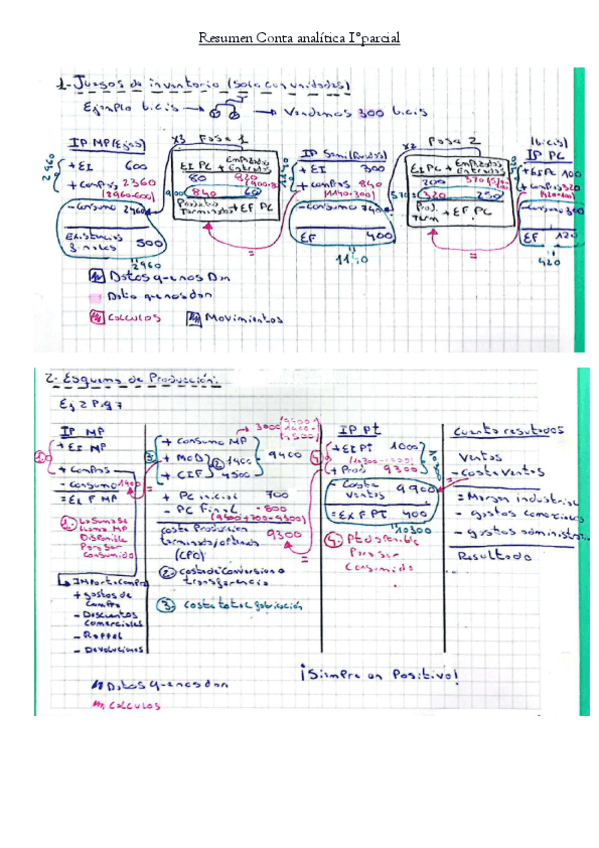 Resumen Conta analítica I°parcial
1-Juegos de inventario (solo con unidades)
Ejemplo bicis → → Vendemos 300 bicis
IP MP (Ejes)
+ EI 600
+ compras 2360
(2960-600)
- Consumo 2460
Existencias finales 500
2960
2960
x3 Fase 1
EI PC + Empezados Entrados
80 820
900 840 60
Productos Terminados + EF PC
1140
IP Semi (Ruedas)
+ EI 300
+ compras 840
(1140-300)
- Consumo 740
EF 400
1140
x2 Fase 2
EI PC + Empezados Entrados
200 370
570 320 250
Prod Term + EF PC
(bicis)
IP PC
+ EI PC 100
+ compras 320
- Consumo 300
EF 120
420
Datos que nos Dan
Dato que nos dan
Calculos
Movimientos
2- Esquema de Producción:
Ej 2 Pag 7
IP MP
+ EI MP
+ compras
- consumo 1400
= EI F MP
1. La suma de
Disponible
Para ser
Consumido
Importe compra
+ gastos de compra
- Descuentos comerciales
- Rappel
- Devoluciones
+ Consumo MP
+ MOD
+ CIF 4500
1400
9400
+ PC inicial 700
- PC Final - 800
(9400+700-9300)
Coste Producción
terminada/obtenida
(CPO)
9300
2. Costes de conversion o
transferencia
3. Coste total fabricación
IP PT
+ EI PT 1000
(10300-1000)
+ Prod 9300
- Coste Ventas 9900
= EX F PT 400
10300
4. Pt disponible
Para ser
Consumido
Cuenta resultados
Ventas
- Coste Ventas
= Margen industrial
- gastos comerciales
- gastos administrat
Resultado
¡Siempre en Positivo!
Datos que nos dan
Calculos